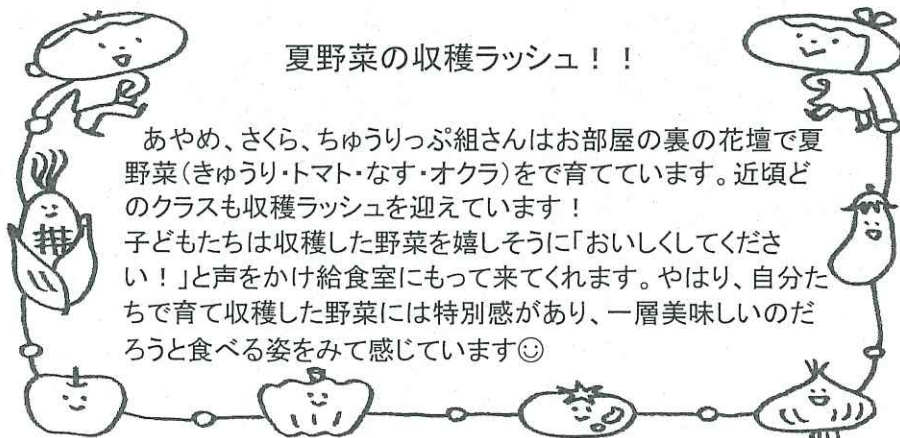 夏野菜の収穫ラッシュ！！
あやめ、さくら、ちゅうりっぷ組さんはお部屋の裏の花壇で夏
野菜（きゅうり・トマト・なす・オクラ）をで育てています。近頃ど
のクラスも収穫ラッシュを迎えています！
子どもたちは収穫した野菜を嬉しそうに「おいしくしてくださ
い！」と声をかけ給食室にもって来てくれます。やはり、自分た
ちで育て収穫した野菜には特別感があり、一層美味しいのだ
ろうと食べる姿をみて感じています☺